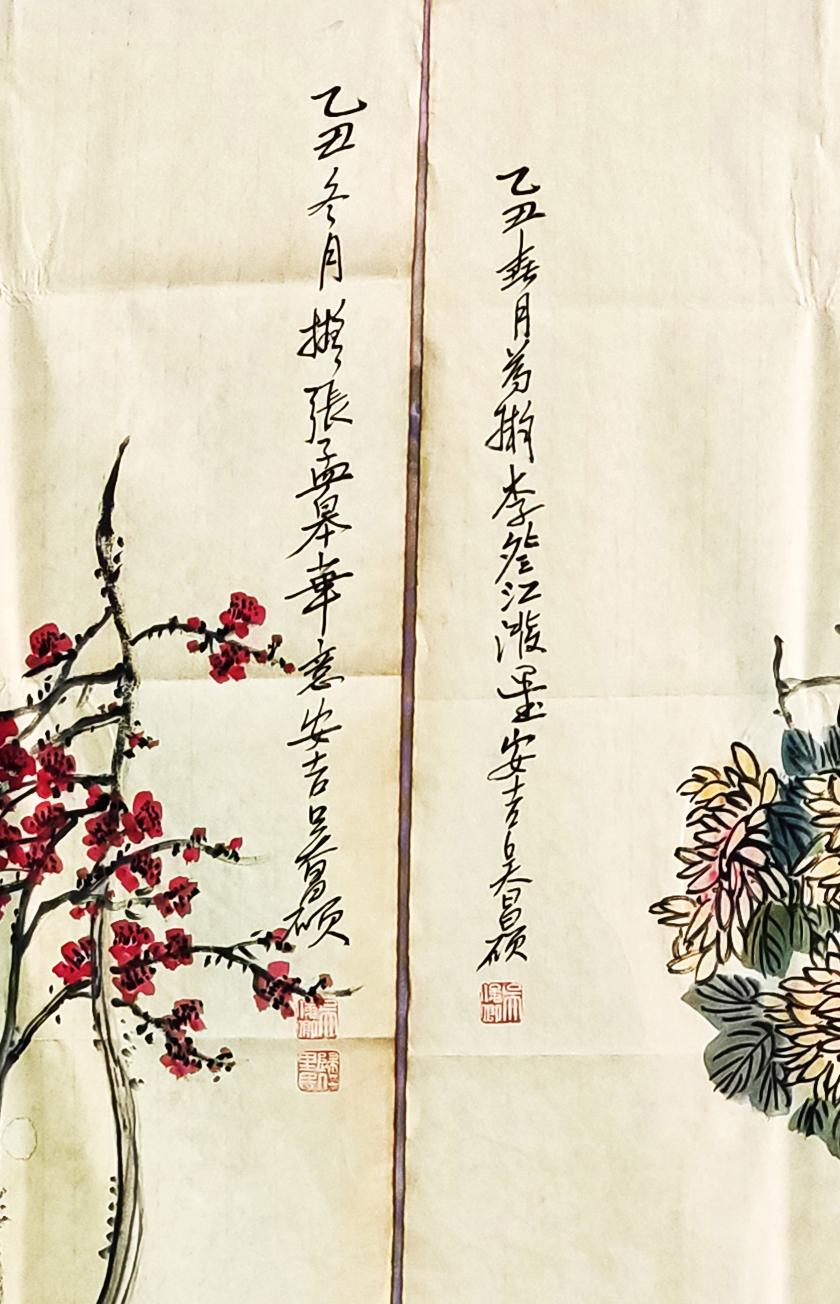 乙丑春月為擬李瑩江潑墨安吉吳昌碩
乙丑冬月擬張孟皋華意安吉吳昌碩